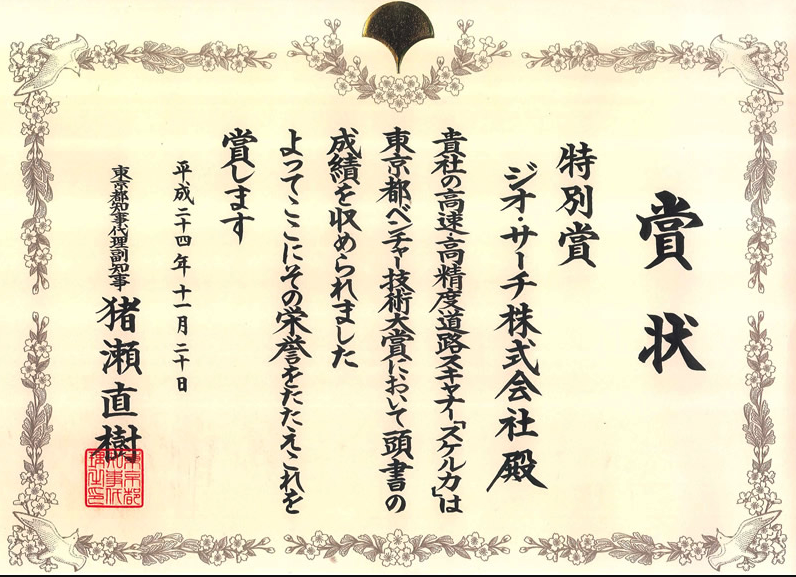 賞状
特別賞
ジオ・サーチ株式会社殿
貴社の高速高精度道路スキャナー「スケルカ」は
東京都ベンチャー技術大賞において頭書の
成績を収められました
よってここにその栄誉をたたえこれを
賞します
平成二十四年十一月二十日
東京都知事代理副知事
猪瀬直樹